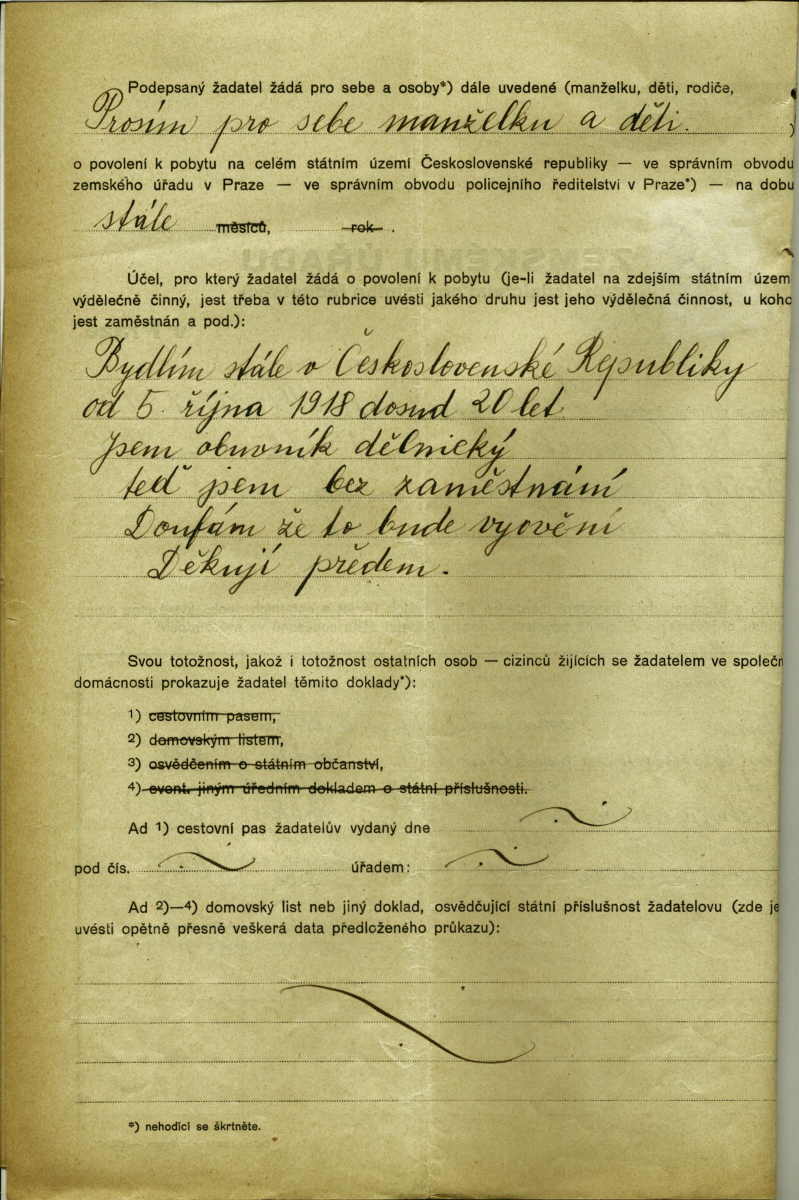 Podepsaný žadatel žádá pro sebe a osoby*) dále uvedené (manželku, děti, rodiče,
Prosím pro sebe manželku a děti. )
o povolení k pobytu na celém státním území Československé republiky — ve správním obvodu
zemského úřadu v Praze — ve správním obvodu policejního ředitelství v Praze*) — na dobu
stále měsíců, rok .
Účel, pro který žadatel žádá o povolení k pobytu (je-li žadatel na zdejším státním územ
výdělečně činný, jest třeba v této rubrice uvésti jakého druhu jest jeho výdělečná činnost, u koho
jest zaměstnán a pod.):
Bydlím stále v Československé Republiky
od 5. října 1918 dosud 20 let
jsem obuvník dělnický
teď jsem bez zaměstnání
Doufám že to bude vyovění
Děkuji předem.
Svou totožnost, jakož i totožnost ostatních osob — cizinců žijících se žadatelem ve společn
domácnosti prokazuje žadatel těmito doklady*):
1) cestovním pasem,
2) domovským listem,
3) osvědčením o státním občanství,
4) event. jiným úředním dokladem o státní příslušnosti.
Ad 1) cestovní pas žadatelův vydaný dne
pod čís. úřadem:
Ad 2)—4) domovský list neb jiný doklad, osvědčující státní příslušnost žadatelovu (zde je
uvésti opětně přesně veškerá data předloženého průkazu):
*) nehodící se škrtněte.